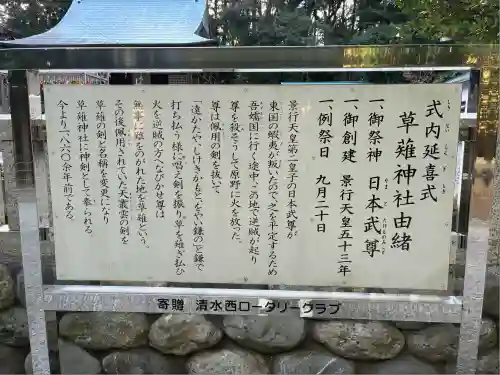 式内延喜式
草薙神社由緒
一、御祭神 日本武尊
一、御創建 景行天皇五十三年
一、例祭日 九月二十日
景行天皇第二皇子の日本武尊が
東国の蝦夷が叛いたので之を平定するため
吾嬬国に行く途中、この地で逆賊が起り
尊を殺そうして原野に火を放った。
尊は佩用の剣を抜いて
「遠かたや、しげきがもとをやい鎌の」と鎌で
打ち払う様に唱え剣を振り、草を薙ぎ払ひ
火を逆賊の方へなびかせ尊は
無事に難をのがれた地を草薙という。
その後佩用されていた天叢雲の剣を
草薙の剣と名称を変更になり
草薙神社に神剣として奉られる。
今より一八六〇余年前である。
寄贈 清水西ロータリークラブ